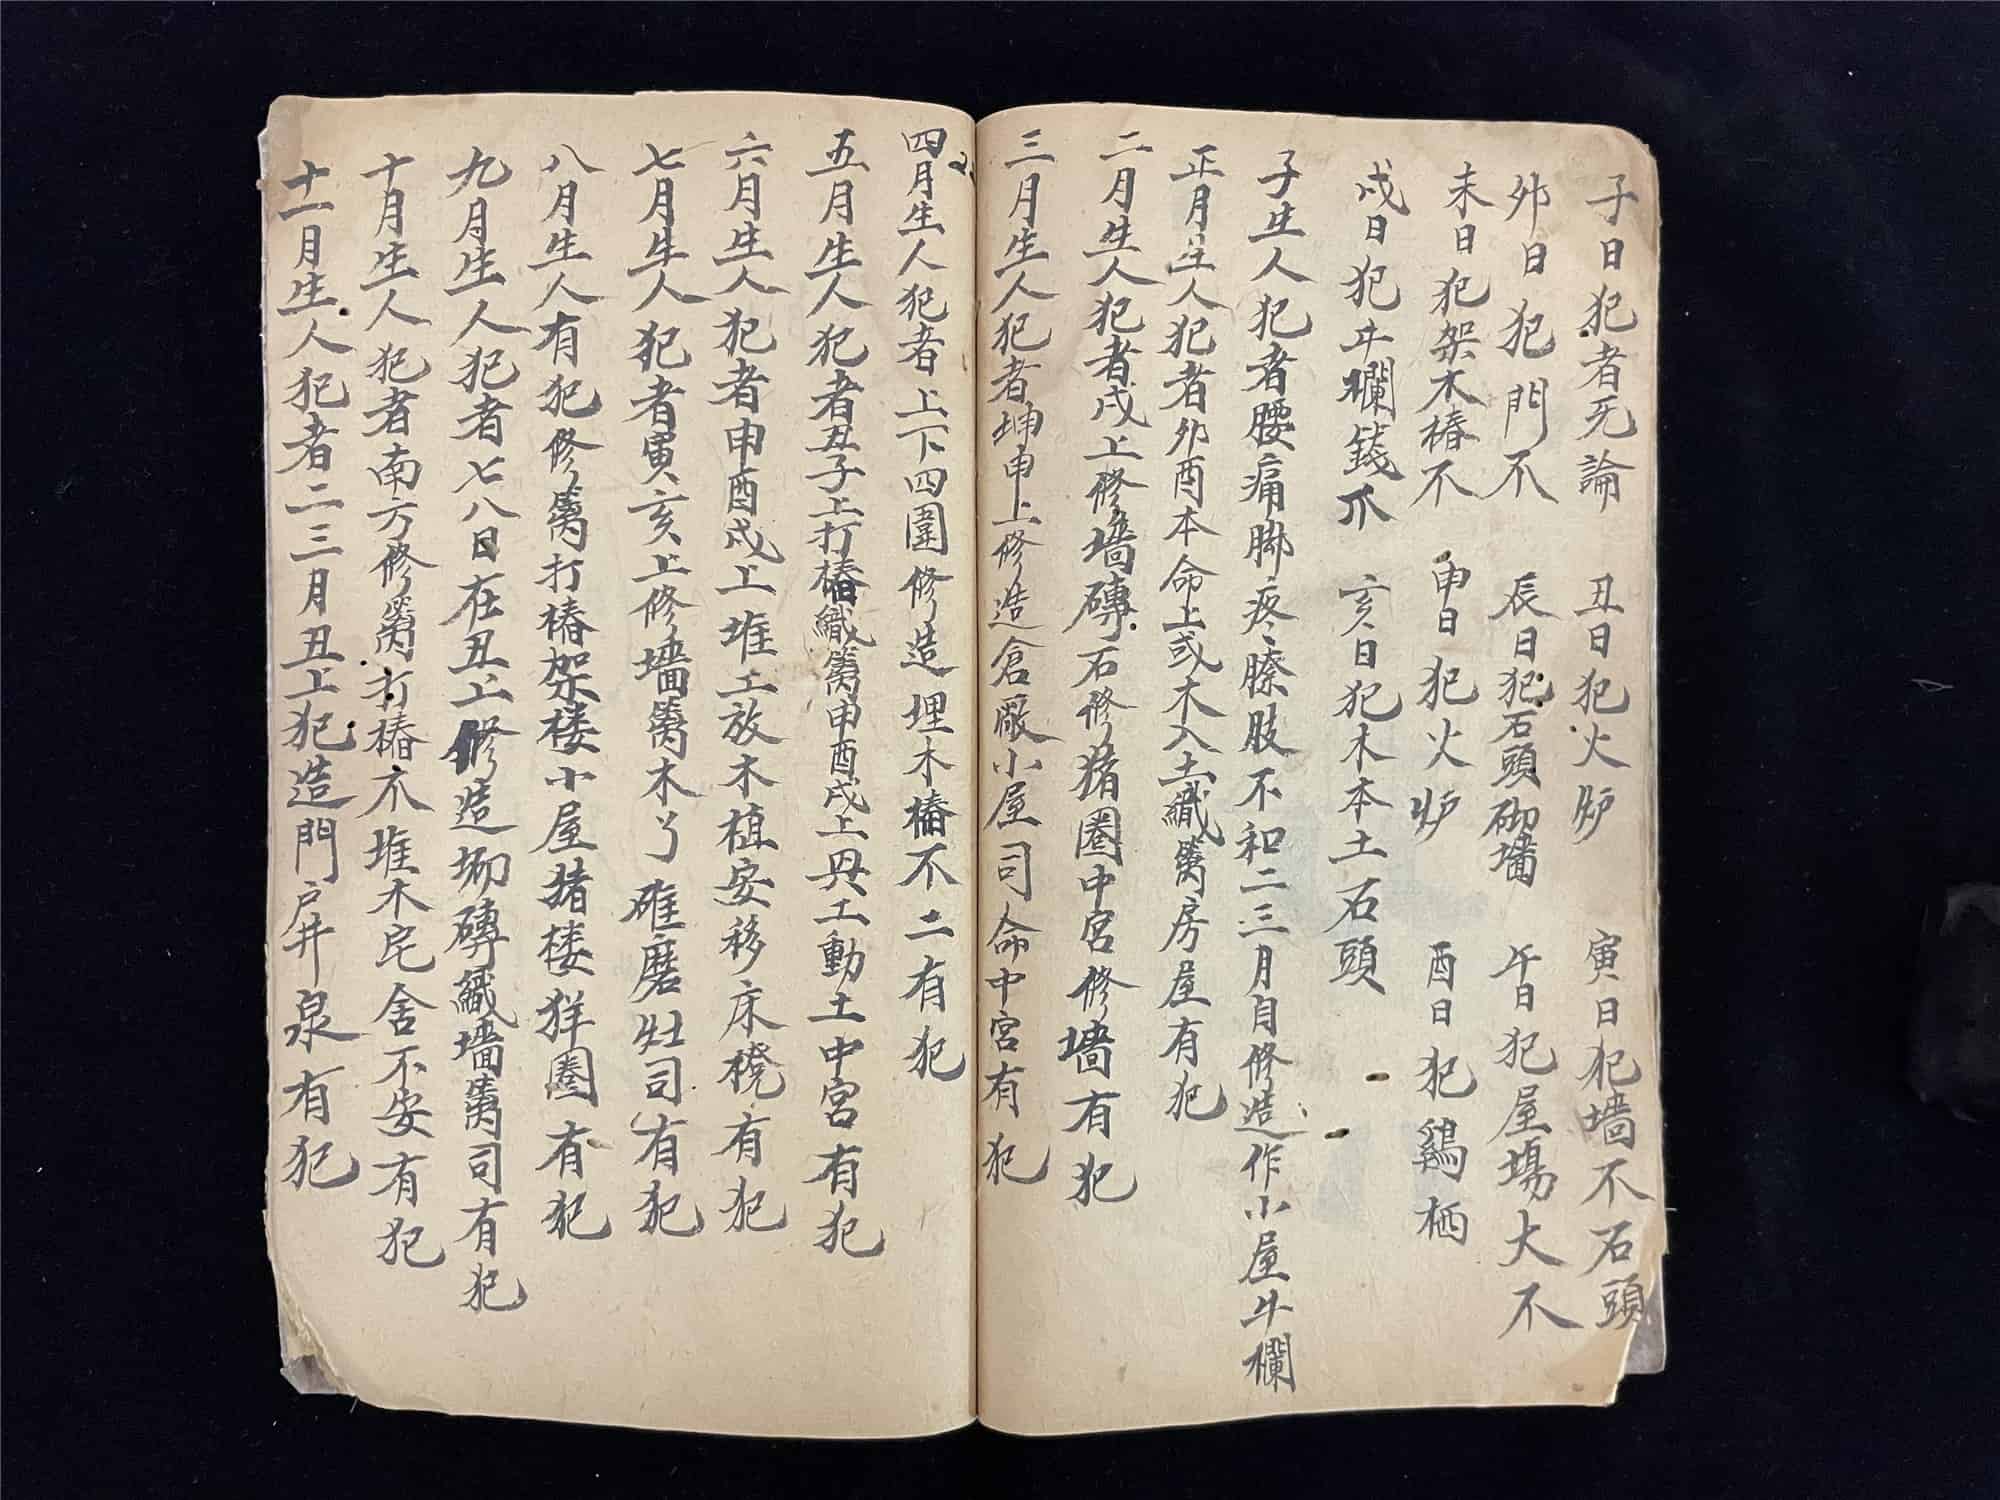 子日犯者死論 丑日犯火炉 寅日犯墙不石頭
卯日犯門不 辰日犯石頭砌墙 午日犯屋場大不
未日犯架木樁不 申日犯火炉 酉日犯鷄栖
戌日犯牛欄錢爪 亥日犯木本土石頭
子生人犯者腰痛脚疼膝肢不和二三月自修造作小屋牛欄
正月生人犯者卯酉本命上或木入土織篱房屋有犯
二月生人犯者戌上修墙磚石修猪圈中宮修墙有犯
三月生人犯者坤申上修造倉廠小屋司命中宮有犯
四月生人犯者上下四圍修造埋木樁不二有犯
五月生人犯者丑子上打樁織篱申酉戌上興工動土中宮有犯
六月生人犯者申酉戌上堆土放木植安移床櫈有犯
七月生人犯者寅亥上修墙篱木丫碓磨灶司有犯
八月生人有犯修篱打樁架楼小屋猪楼牂圈有犯
九月生人犯者七八日在丑上修造坳磚織墙篱司有犯
十月生人犯者南方修篱打樁不堆木宅舍不安有犯
十一月生人犯者二三月丑上犯造門户井泉有犯